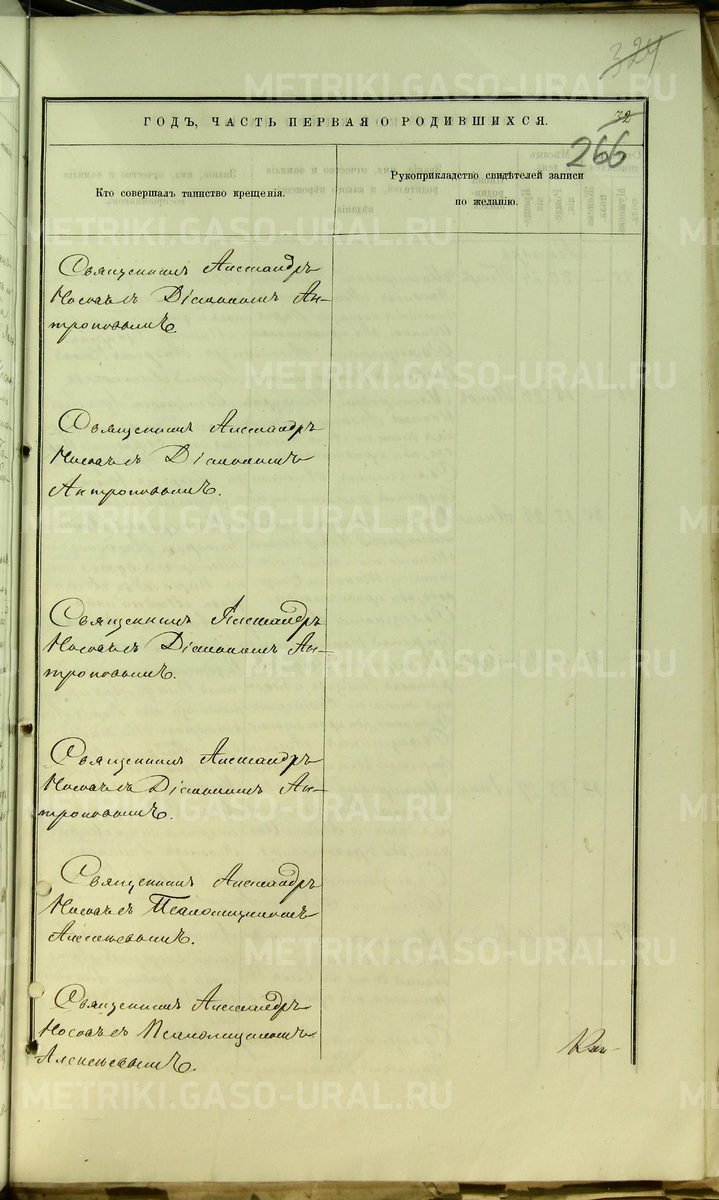 324
ГОДЪ, ЧАСТЬ ПЕРВАЯ О РОДИВШИХСЯ.
32
266
Кто совершалъ таинство крещенія.
Рукоприкладство свидѣтелей записи
по желанію.
Священникъ Александръ
Носовъ съ Діакономъ Ан-
троповымъ.
Священникъ Александръ
Носовъ съ Діакономъ
Антроповымъ.
Священникъ Александръ
Носовъ съ Діакономъ Ан-
троповымъ.
Священникъ Александръ
Носовъ съ Діакономъ Ан-
троповымъ.
Священникъ Александръ
Носовъ съ Псаломщикомъ
Алексѣевымъ.
Священникъ Александръ
Носовъ съ Псаломщикомъ
Алексѣевымъ.
METRIKI.GASO-URAL.RU